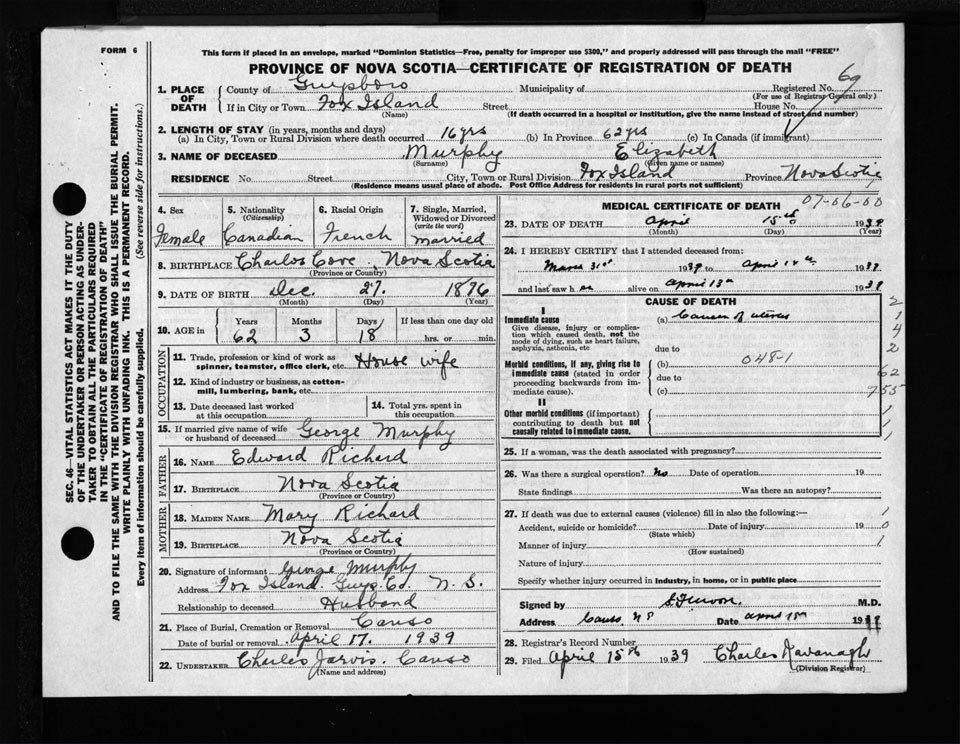 FORM 6
This form if placed in an envelope, marked "Dominion Statistics—Free, penalty for improper use $300," and properly addressed will pass through the mail "FREE"
PROVINCE OF NOVA SCOTIA—CERTIFICATE OF REGISTRATION OF DEATH
69
1. PLACE OF DEATH County of Guysboro Municipality of Registered No.
(For use of Registrar-General only)
If in City or Town Fox Island Street House No.
(Name) (If death occurred in a hospital or institution, give the name instead of street and number)
2. LENGTH OF STAY (in years, months and days)
(a) In City, Town or Rural Division where death occurred 16 yrs (b) In Province 62 yrs (c) In Canada (if immigrant)
3. NAME OF DECEASED Murphy Elizabeth
(Surname) (Given name or names)
RESIDENCE No. Street City, Town or Rural Division Fox Island Province Nova Scotia
(Residence means usual place of abode. Post Office Address for residents in rural parts not sufficient)
4. Sex Female
5. Nationality (Citizenship) Canadian
6. Racial Origin French
7. Single, Married, Widowed or Divorced (write the word) married
8. BIRTHPLACE Charlos Cove, Nova Scotia
(Province or Country)
9. DATE OF BIRTH Dec. 27. 1876
(Month) (Day) (Year)
10. AGE in Years 62 Months 3 Days 18 If less than one day old hrs. or min.
OCCUPATION
11. Trade, profession or kind of work as spinner, teamster, office clerk, etc. House wife
12. Kind of industry or business, as cotton-mill, lumbering, bank, etc.
13. Date deceased last worked at this occupation
14. Total yrs. spent in this occupation
15. If married give name of wife or husband of deceased George Murphy
FATHER
16. NAME Edward Richard
17. BIRTHPLACE Nova Scotia
(Province or Country)
MOTHER
18. MAIDEN NAME Mary Richard
19. BIRTHPLACE Nova Scotia
(Province or Country)
20. Signature of informant George Murphy
Address Fox Island. Guys Co. N. S.
Relationship to deceased Husband
21. Place of Burial, Cremation or Removal Canso
Date of burial or removal April 17. 1939
22. UNDERTAKER Charles Jarvis. Canso
(Name and address)
07-06-00
MEDICAL CERTIFICATE OF DEATH
23. DATE OF DEATH April 15th 1939
(Month) (Day) (Year)
24. I HEREBY CERTIFY that I attended deceased from:
March 31st 1939 to April 14th 1939
and last saw her alive on April 13th 1939
CAUSE OF DEATH
I
Immediate cause
Give disease, injury or complication which caused death, not the mode of dying, such as heart failure, asphyxia, asthenia, etc
(a) Cancer of uterus
due to
Morbid conditions, if any, giving rise to immediate cause (stated in order proceeding backwards from immediate cause).
(b) 048-1
due to
(c)
II
Other morbid conditions (if important) contributing to death but not causally related to immediate cause.
2
1
4
2
62
755
1
1
1
25. If a woman, was the death associated with pregnancy?
26. Was there a surgical operation? No Date of operation 19
State findings Was there an autopsy?
27. If death was due to external causes (violence) fill in also the following:— 1
Accident, suicide or homicide? Date of injury 19 0
(State which)
Manner of injury 1
(How sustained)
Nature of injury
Specify whether injury occurred in industry, in home, or in public place
Signed by M.D.
Address Canso N S Date April 15th 1939
28. Registrar's Record Number
29. Filed April 15th 1939 Charles Kavanagh
(Division Registrar)
SEC. 46—VITAL STATISTICS ACT MAKES IT THE DUTY
OF THE UNDERTAKER OR PERSON ACTING AS UNDER-
TAKER TO OBTAIN ALL THE PARTICULARS REQUIRED
IN THE "CERTIFICATE OF REGISTRATION OF DEATH"
AND TO FILE THE SAME WITH THE DIVISION REGISTRAR WHO SHALL ISSUE THE BURIAL PERMIT.
WRITE PLAINLY WITH UNFADING INK. THIS IS A PERMANENT RECORD.
Every item of information should be carefully supplied. (See reverse side for instructions.)